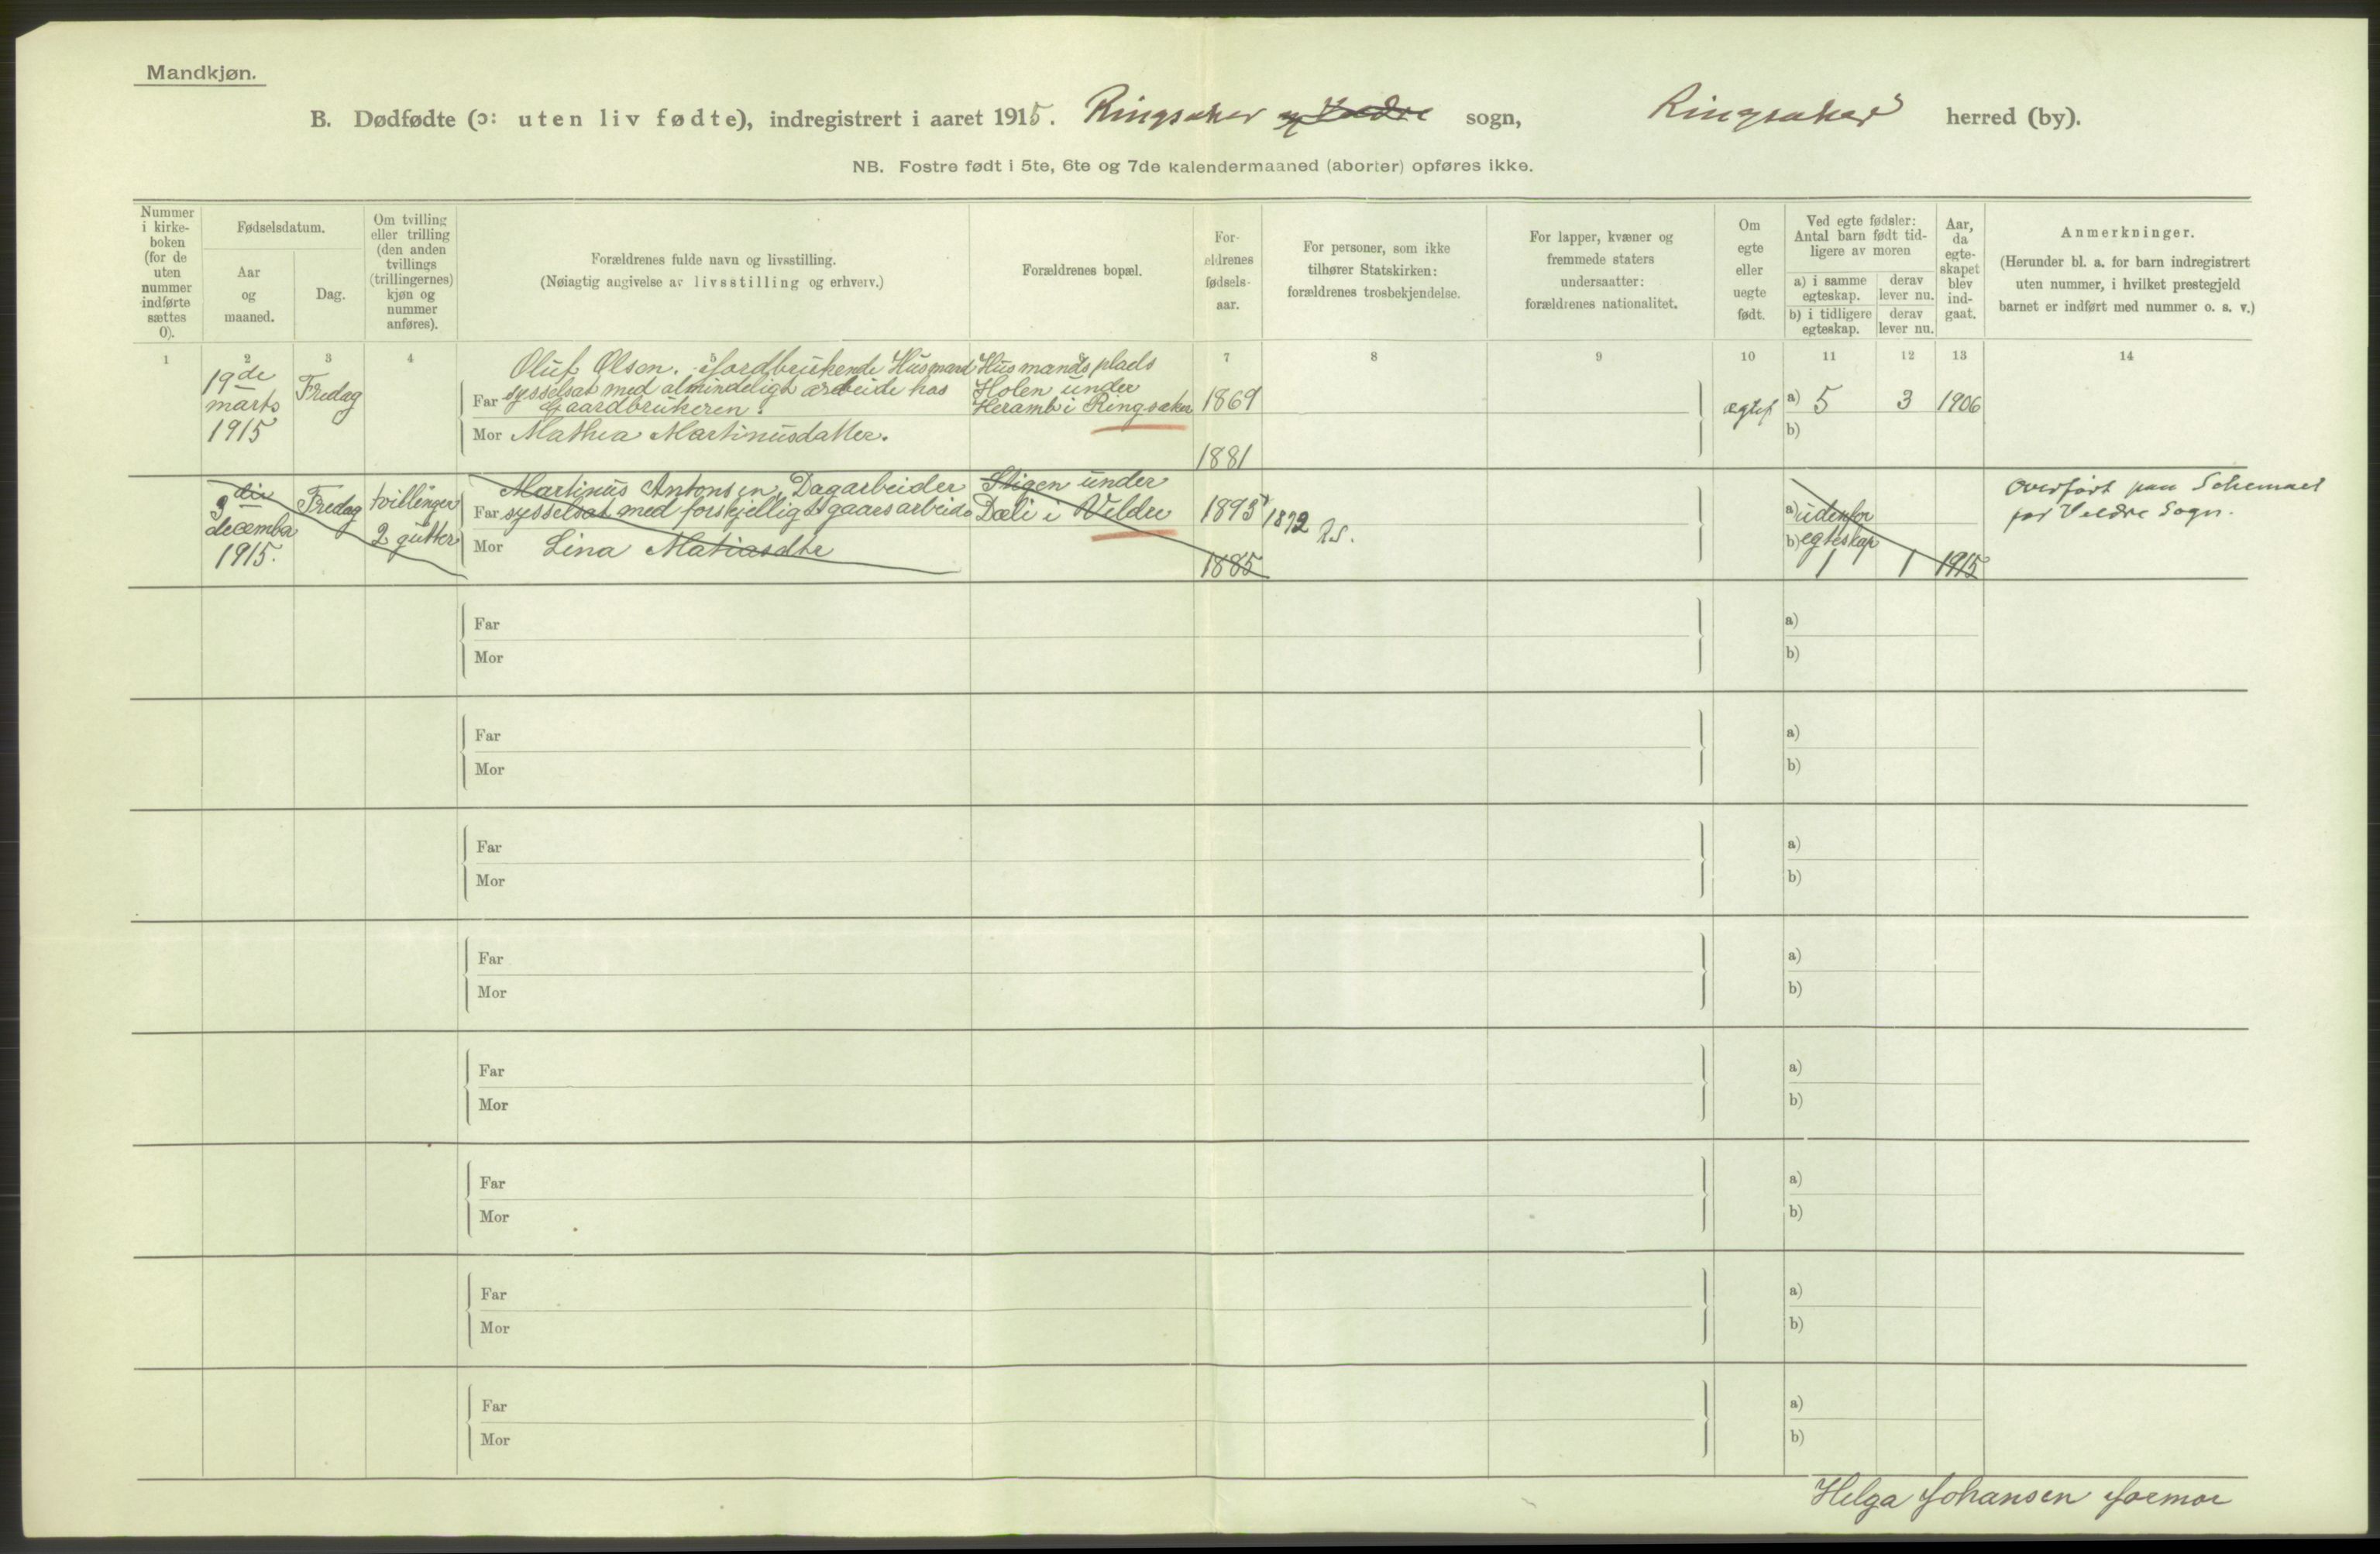 Mandkjøn.
B. Dødfødte (ɔ: uten liv fødte), indregistrert i aaret 1915. Ringsaker og Veldre sogn, Ringsaker herred (by).
NB. Fostre født i 5te, 6te og 7de kalendermaaned (aborter) opføres ikke.
Nummer
i kirke-
boken
(for de
uten
nummer
indførte
sættes
0).
Fødselsdatum.
Aar
og
maaned.
Dag.
Om tvilling
eller trilling
(den anden
tvillings
(trillingernes)
kjøn og
nummer
anføres).
Forældrenes fulde navn og livsstilling.
(Nøiagtig angivelse av livsstilling og erhverv.)
Forældrenes bopæl.
For-
ældrenes
fødsels-
aar.
For personer, som ikke
tilhører Statskirken:
forældrenes trosbekjendelse.
For lapper, kvæner og
fremmede staters
undersaatter:
forældrenes nationalitet.
Om
egte
eller
uegte
født.
Ved egte fødsler:
Antal barn født tid-
ligere av moren
a) i samme
egteskap.
derav
lever nu.
b) i tidligere
egteskap.
derav
lever nu.
Aar,
da
egte-
skapet
blev
ind-
gaat.
Anmerkninger.
(Herunder bl. a. for barn indregistrert
uten nummer, i hvilket prestegjeld
barnet er indført med nummer o. s. v.)
1 2 3 4 5 6 7 8 9 10 11 12 13 14
19de
marts
1915
Fredag
Oluf Olson. Jordbrukende Husmand
Far sysselsat med almindeligt arbeide hos
Gaardbrukeren.
Mor Mathea Martinusdatter.
Husmandsplads
Holen under
Heramb i Ringsaker
1869
1881
ægtef
a) 5 3 1906
b)
3die
december
1915.
Fredag
tvillinger
2 gutter
Martinus Antonsen, Dagarbeider
Far sysselsat med forskjelligt gaarsarbeide
Mor Lina Matiasdtr
Stigen under
Dæli i Veldre
1893
1872
1885
a) udenfor
b) egteskap
1 1 1915
Overført paa Schemaet
for Veldre Sogn.
Far
Mor
a)
b)
Far
Mor
a)
b)
Far
Mor
a)
b)
Far
Mor
a)
b)
Far
Mor
a)
b)
Far
Mor
a)
b)
Far
Mor
a)
b)
Far
Mor
a)
b)
Helga Johansen Jormor